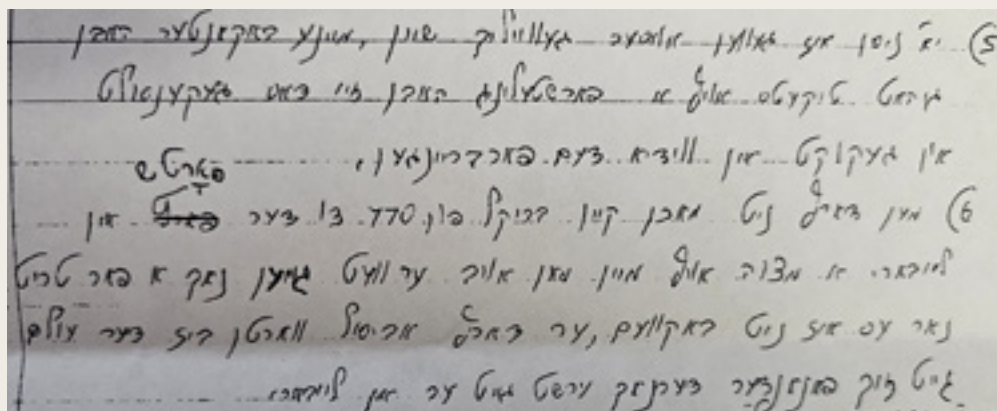 5) יא ניסן איז געווען אזוי געוויליק שוין, מיינע באקאנטער האבן
געהאט טיקעטס אויף א פארשטעלונג האבן זיי דאס געקענסלט
אין געקוקט אין ווידיא דעם פארברייינגען,
פארטש
6) מען דארף ניט מאכן קיין בריקל פון 770 צו דער אין
ליובארי. א מצוה אויף מיין מאן אויב ער וועט גייען נאך א פאר טריט
נאר עס איז ניט באקוועם, ער דארף אביסל ווארטן ביז דער עולם
גייט זיך פאנאנדער דערנאך ערשט גייט ער אין ליובארי.